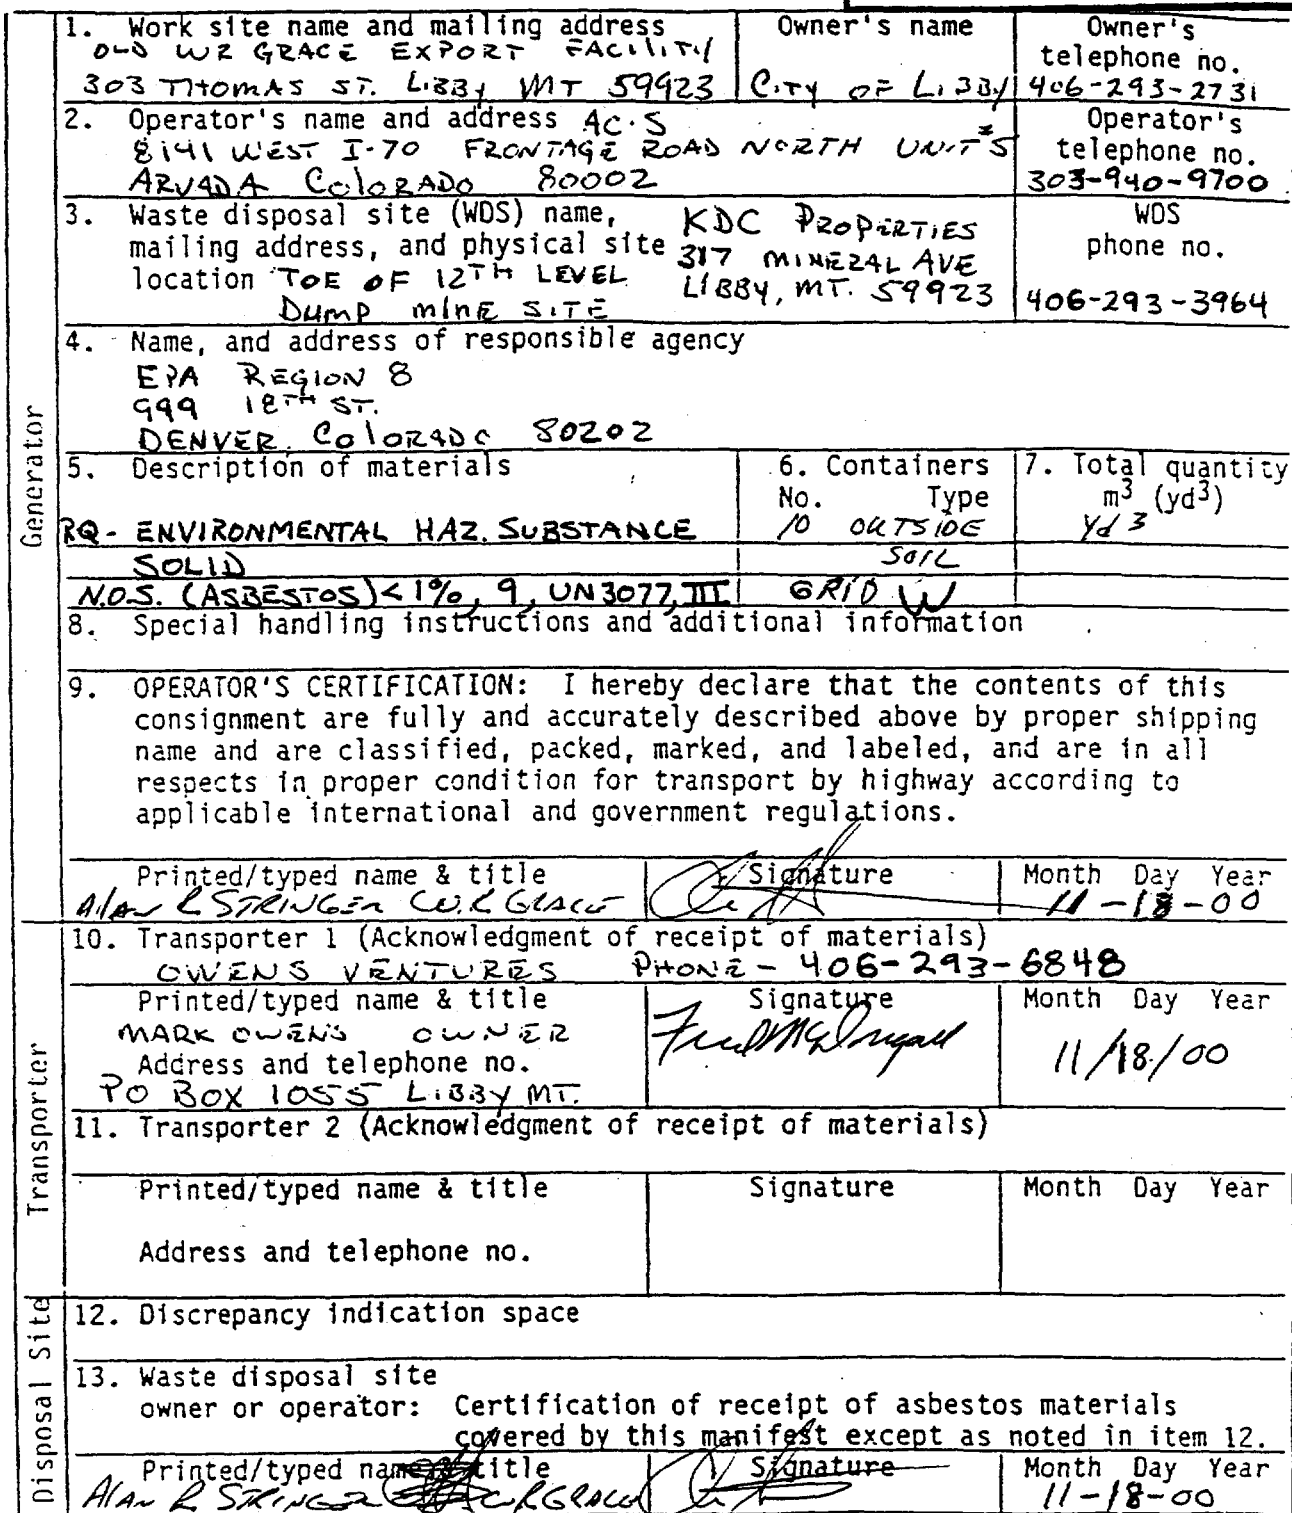 1. Work site name and mailing address
OLD WR GRACE EXPORT FACILITY
303 THOMAS ST. LIBBY MT 59923
Owner's name
CITY OF LIBBY
Owner's
telephone no.
406-293-2731
2. Operator's name and address AC.S
8141 WEST I-70 FRONTAGE ROAD NORTH UNIT #5
ARVADA COLORADO 80002
Operator's
telephone no.
303-940-9700
3. Waste disposal site (WDS) name,
mailing address, and physical site
location TOE OF 12TH LEVEL
DUMP MINE SITE
KDC PROPERTIES
317 MINERAL AVE
LIBBY, MT. 59923
WDS
phone no.
406-293-3964
Generator
4. Name, and address of responsible agency
EPA REGION 8
999 18TH ST.
DENVER, COLORADO 80202
5. Description of materials
6. Containers
No. Type
7. Total quantity
m3 (yd3)
RQ- ENVIRONMENTAL HAZ. SUBSTANCE 10 OUTSIDE Yd 3
SOLID SOIL
N.O.S. (ASBESTOS)<1%, 9, UN3077, III GRID W
8. Special handling instructions and additional information
9. OPERATOR'S CERTIFICATION: I hereby declare that the contents of this
consignment are fully and accurately described above by proper shipping
name and are classified, packed, marked, and labeled, and are in all
respects in proper condition for transport by highway according to
applicable international and government regulations.
Printed/typed name & title Signature Month Day Year
Alan R STRINGER W.R GRACE 11-18-00
Transporter
10. Transporter 1 (Acknowledgment of receipt of materials)
OWENS VENTURES PHONE - 406-293-6848
Printed/typed name & title Signature Month Day Year
MARK OWENS OWNER
Address and telephone no. 11/18/00
PO BOX 1055 LIBBY MT.
11. Transporter 2 (Acknowledgment of receipt of materials)
Printed/typed name & title Signature Month Day Year
Address and telephone no.
Disposal Site
12. Discrepancy indication space
13. Waste disposal site
owner or operator: Certification of receipt of asbestos materials
covered by this manifest except as noted in item 12.
Printed/typed name & title Signature Month Day Year
Alan R STRINGER W.R GRACE 11-18-00